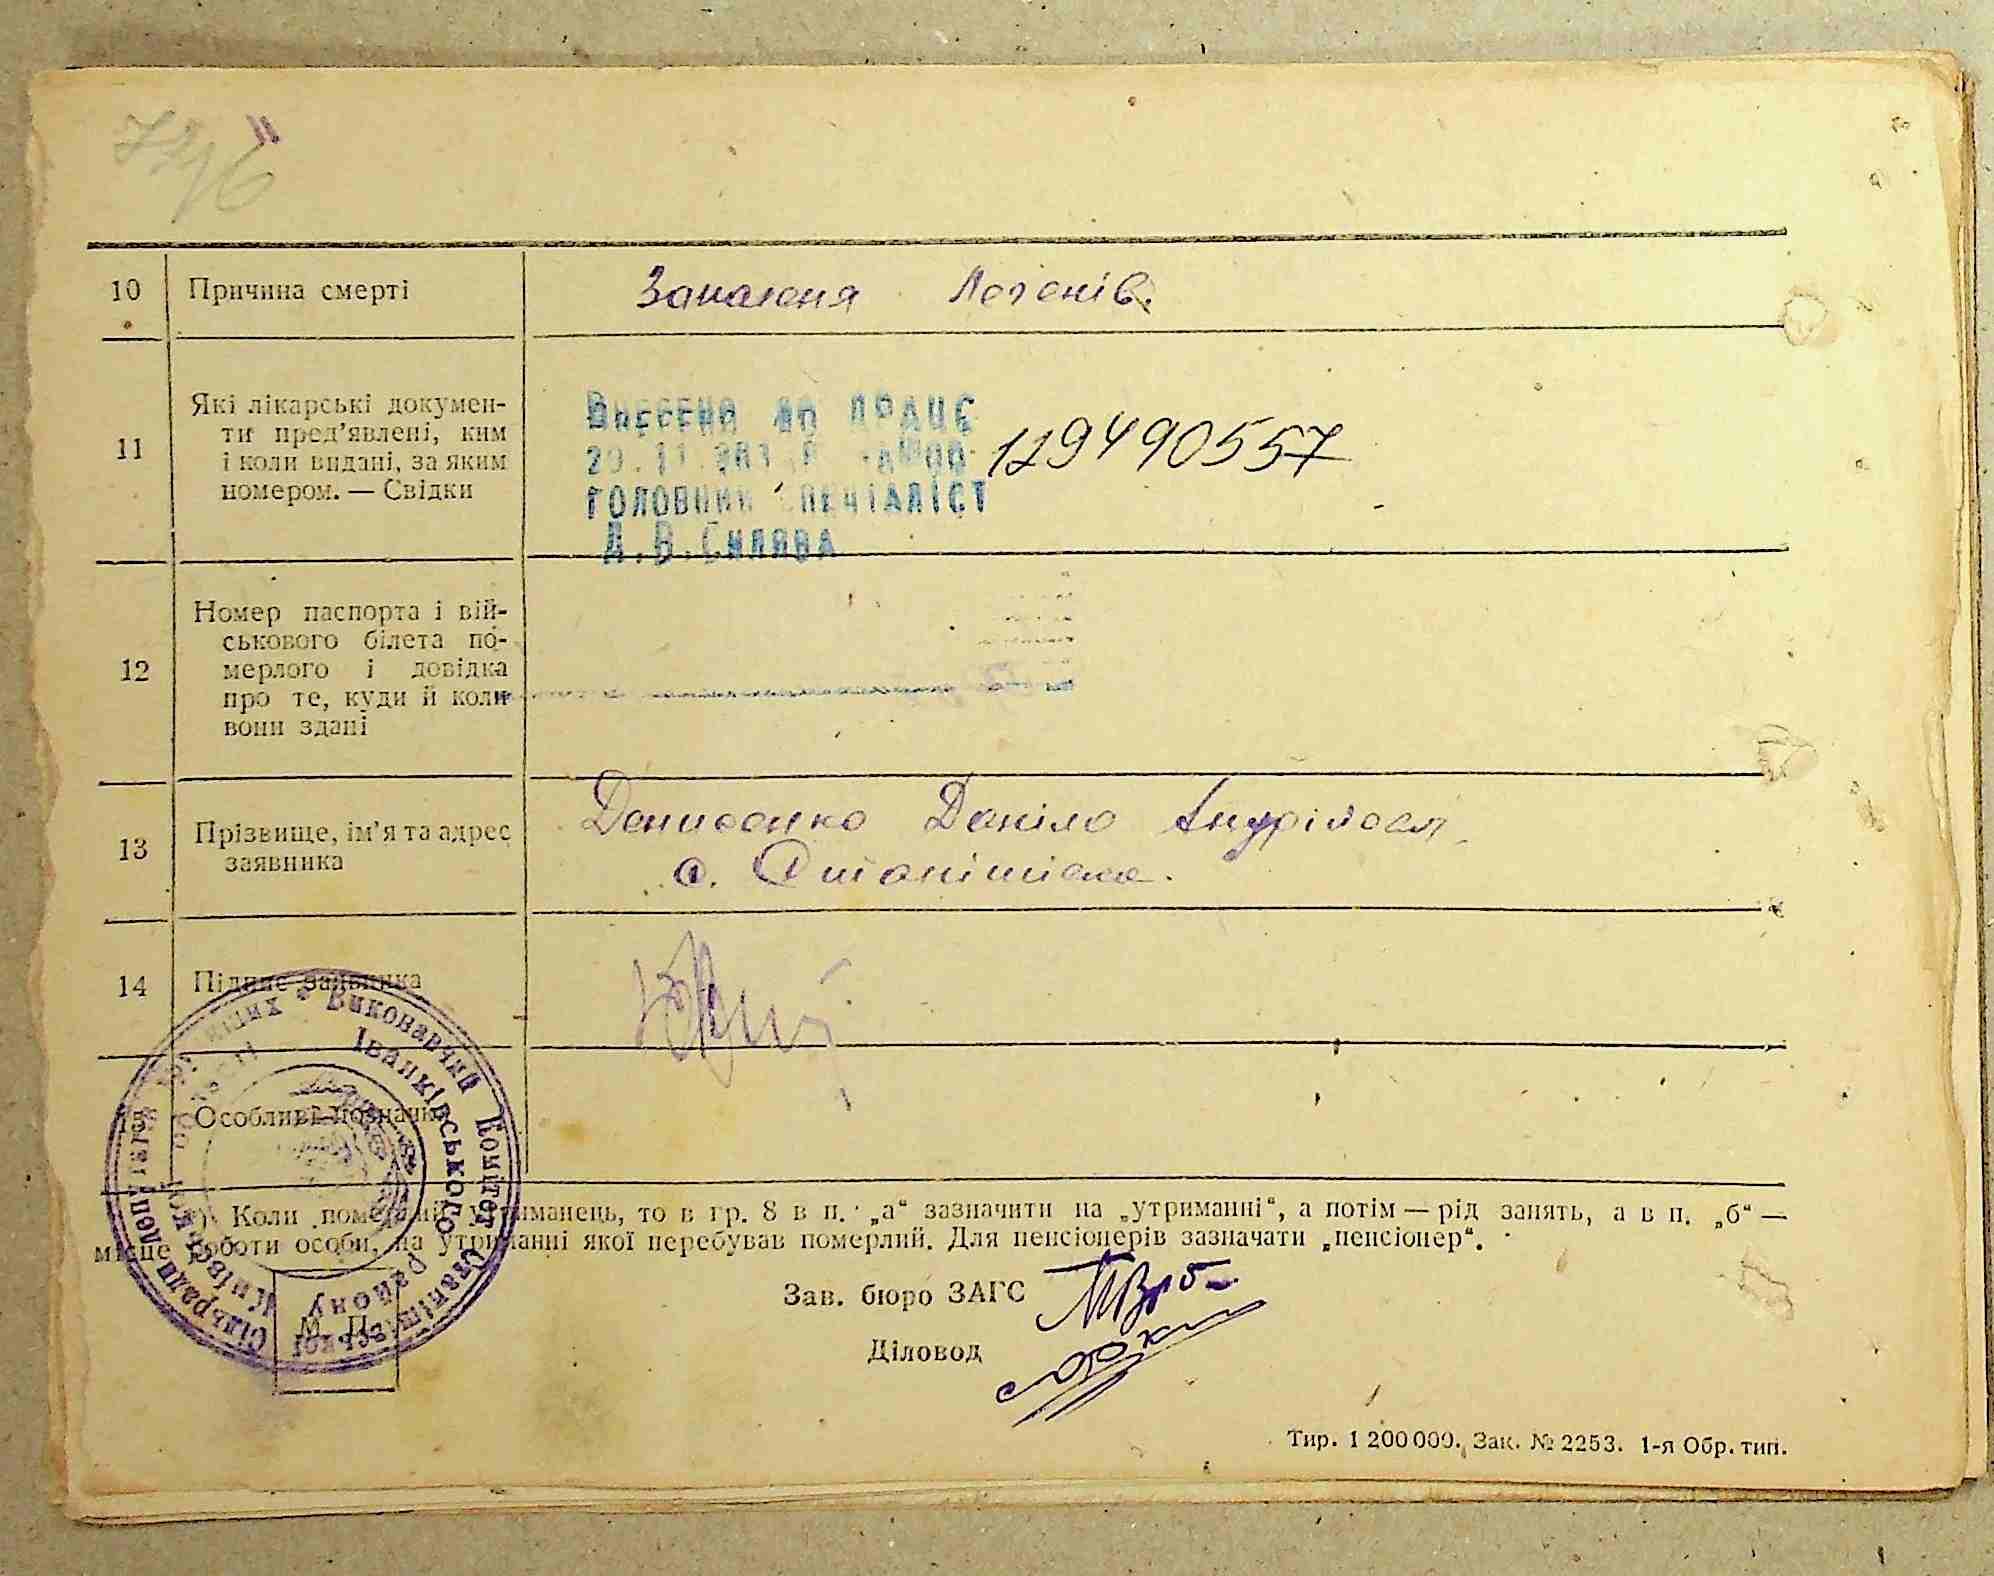 10 Причина смерті
Запаленя Легенів.
11 Які лікарські докумен-
ти пред'явлені, ким
і коли видані, за яким
номером. — Свідки
Внесено до ДРАЦС
ГОЛОВНИЙ СПЕЦІАЛІСТ
Д.В.Силява
129490557
12 Номер паспорта і вій-
ськового білета по-
мерлого і довідка
про те, куди й коли
вони здані
13 Прізвище, ім'я та адрес
заявника
Денисенко Даніло Андрійовл
с. Станішівка.
14 Підпис заявника
15 Особливі позначки
Виконавчий Комітет Станішівської Сільради депутатів трудящих
Іванківського району Київської області
*) Коли померлий утриманець, то в гр. 8 в п. „а“ зазначити на „утриманні“, а потім — рід занять, а в п. „б“ —
місце роботи особи, на утриманні якої перебував померлий. Для пенсіонерів зазначати „пенсіонер“.
Зав. бюро ЗАГС
М. П.
Діловод
Тир. 1 200 000. Зак. № 2253. 1-я Обр. тип.